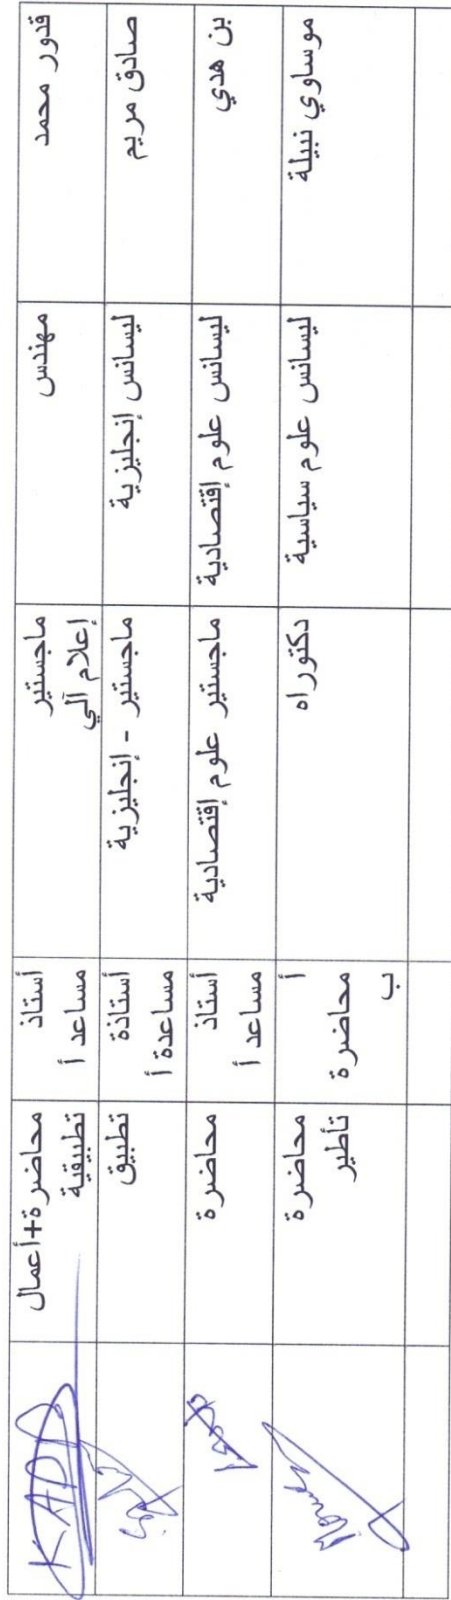 قدور محمد
مهندس
ماجستير
إعلام آلي
أستاذ
مساعد أ
محاضرة+أعمال
تطبيقية
KAD
صادق مريم
ليسانس إنجليزية
ماجستير - إنجليزية
أستاذة
مساعدة أ
تطبيق
بن هدي
ليسانس علوم إقتصادية
ماجستير علوم إقتصادية
أستاذ
مساعد أ
محاضرة
موساوي نبيلة
ليسانس علوم سياسية
دكتوراه
أ
محاضرة
ب
محاضرة
تأطير